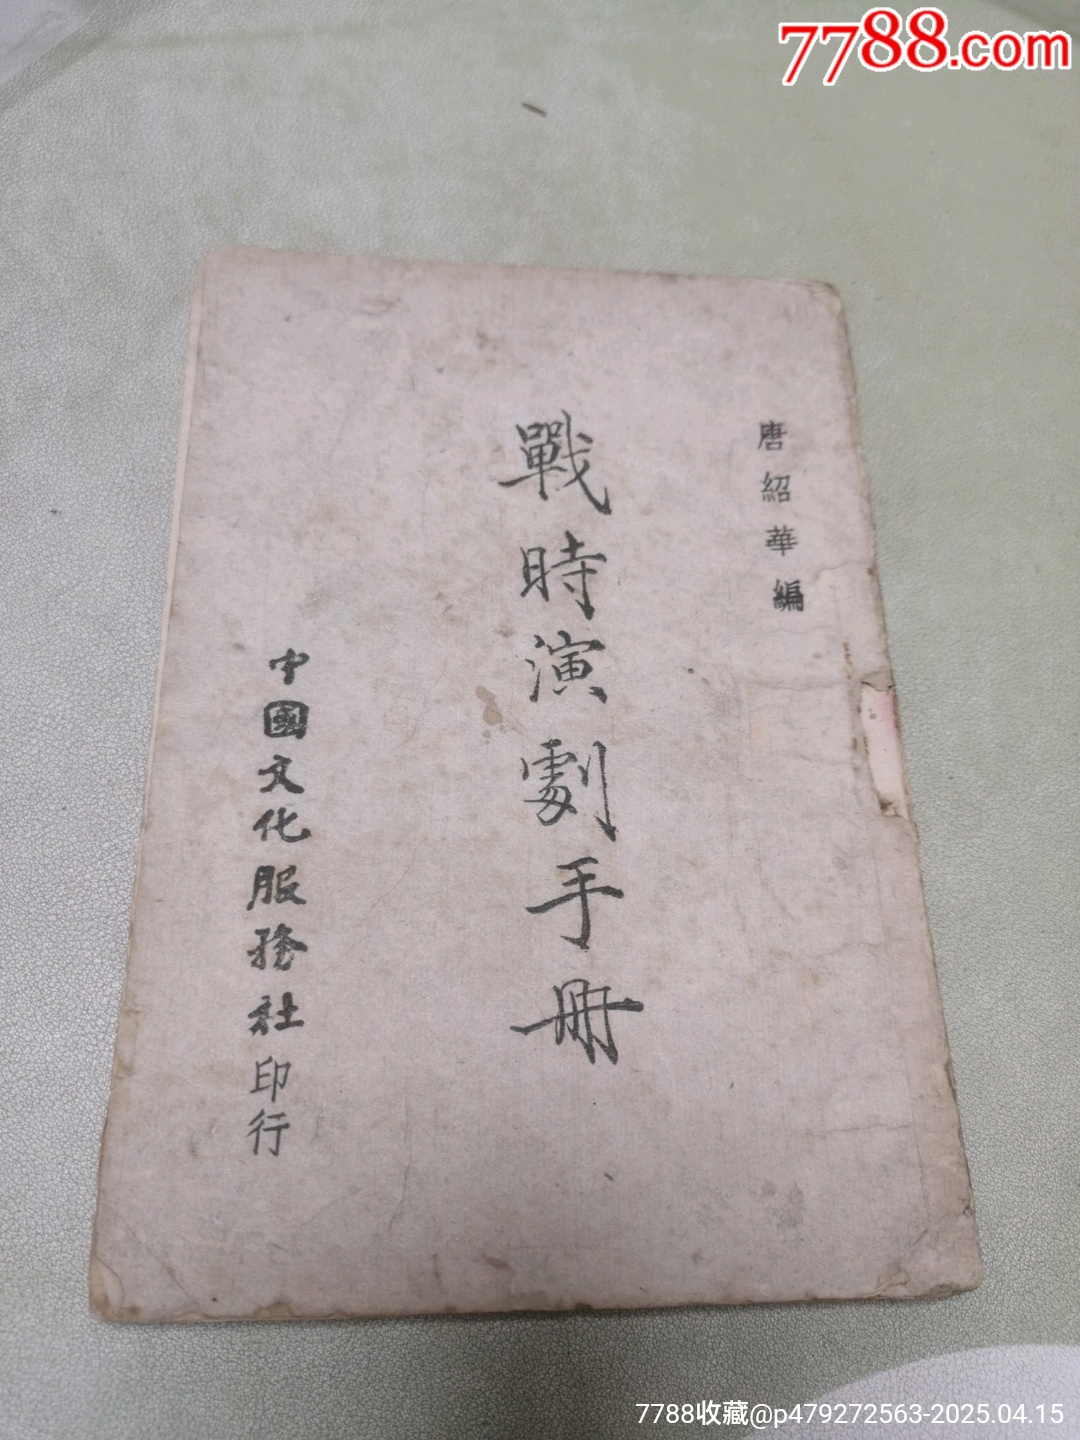 7788.com
唐紹華編
戰時演劇手冊
中國文化服務社印行
7788收藏@p479272563-2025.04.15